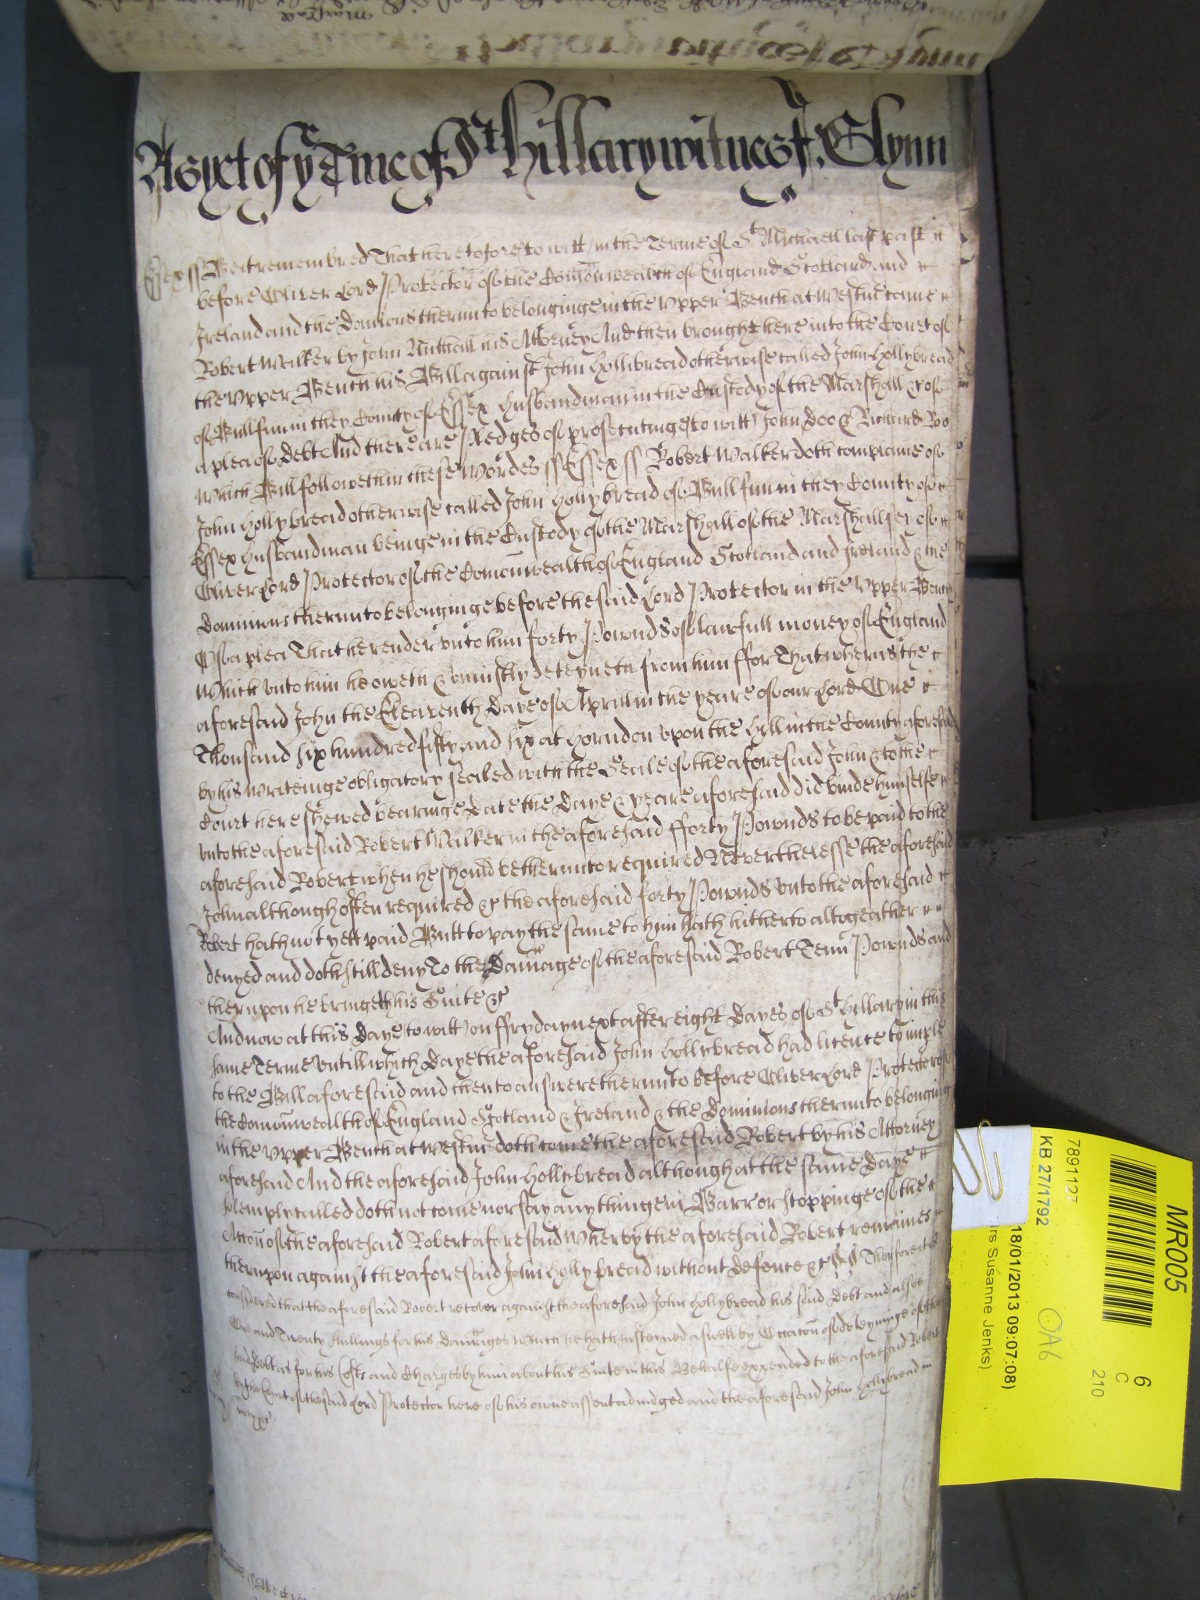 As yet of ye Terme of St Hillary witness J: Glynn
Essex ss Be it remembred That heretofore to witt in the Terme of St Michaell last past
before Oliver Lord Protector of the Comonwealth of England Scotland and
Ireland and the Domions therunto belonginge in the Upper Bench at Westmr came
Robert Walker by John Nuthall his Attorney And then brought here into the Court of
the Upper Bench his Bill against John Hollibread otherwise called John Hollybread
of Bullfun in they County of Essex Husbandman in the Custody of the Marshall &c of
a plea of Debt And there are Pledges of prosecutinge to witt John Doo & Richard Roo
Which Bill followeth in these Wordes ss Essex ss Robert Walker doth complaine of
John Hollybread otherwise called John Hollybread of Bullfun in they County of
Essex Husbandman beinge in the Custody of the Marshall of the Marshallsey of
Oliver Lord Protector of the Comonwealth of England Scotland and Ireland & the
Dominions therunto belonginge before the said Lord Protector in the Upper Bench
Of a plea That he render unto him forty Pownds of lawfull money of England
Which unto him he oweth & uniustly deteyneth from him ffor That wheras the
aforesaid John the Eleaventh Daye of Aprill in the yeare of our Lord One
Thousand six hundred fifty and six at Horndon upon the Hill in the County aforesaid
by his writeinge obligatory sealed with the Seale of the aforesaid John & to the
Court here shewed bearinge Date the Daye & yeare aforesaid did binde himselfe
unto the aforesaid Robert Walker in the aforesaid fforty Pownds to be paid to the
aforesaid Robert when he should be therunto required Neverthelesse the aforesaid
John although often required &c the aforesaid forty Pownds unto the aforesaid
Robert hath not yett paid Butt to pay the same to him hath hitherto altogeather
denyed and doth still deny To the Damage of the aforesaid Robert Tenn Pownds and
therupon he bringeth his Suite &c
And now at this Daye to witt on ffryday next after eight Dayes of St Hillary in this
same Terme Untill which Daye the aforesaid John Hollybread had licence to imple
to the Bill aforesaid and then to answere therunto before Oliver Lord Protector of
the Comonwealth of England Scotland & Ireland & the Dominions therunto belonging
in the Upper Bench at Westmr doth come the aforesaid Robert by his Attorney
aforesaid And the aforesaid John Hollybread although at the same Daye
solemply called doth not come nor say any thinge in Barr or stoppinge of the
Accon of the aforesaid Robert aforesaid Wherby the aforesaid Robert remaines
therupon against the aforesaid John Hollybread without defence &c Therfore it is
considered that the aforesaid Robert recover against the aforesaid John Hollybread his said Debt and alsoe
One and Twenty shillings for his Damages which he hath susteyned aswell by Occation of deteyninge of the
said Debt as for his Costs and Charges by him about his Suite in this Behalfe expended to the aforesaid Robert
by the Court of the said Lord Protector here of his owne assent adiudged and the aforesaid John Hollybread in
mercy &c
MR005
6
C
210
7891127
KB 27/1792
OA6
18/01/2013 09:07:08)
rs Susanne Jenks)